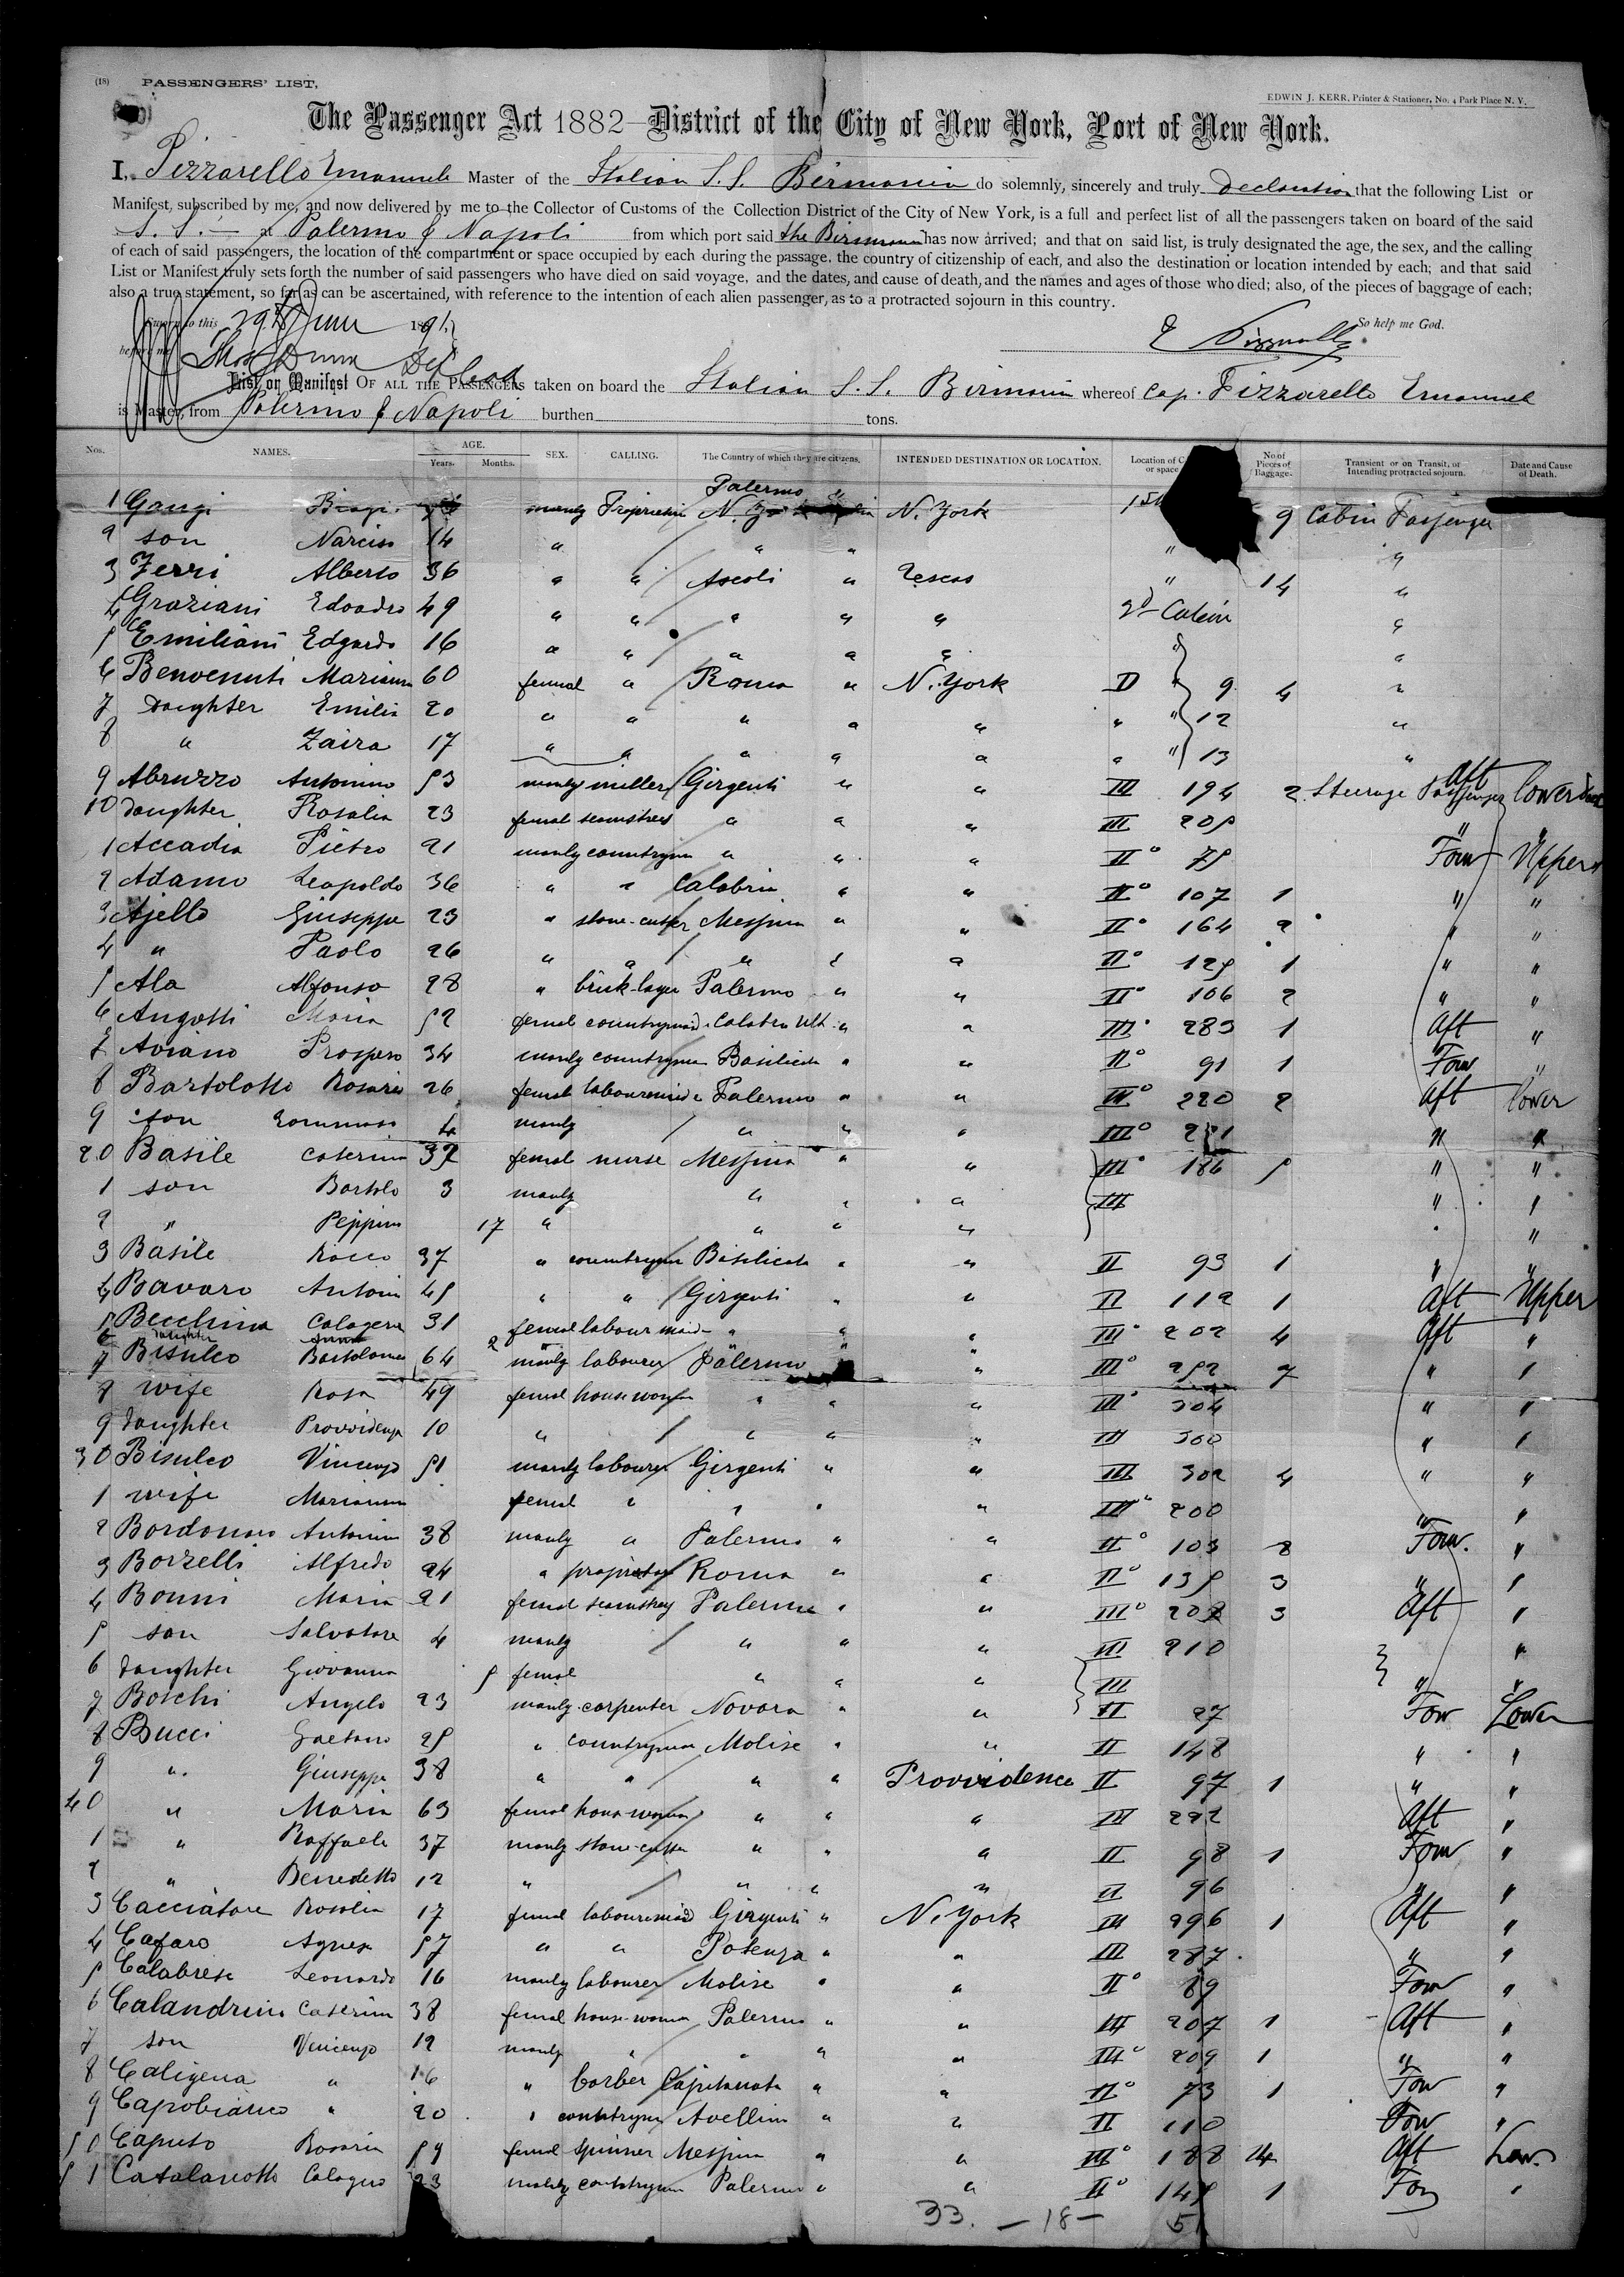 (18) PASSENGERS' LIST,
EDWIN J. KERR, Printer & Stationer, No. 4 Park Place N. Y.
The Passenger Act 1882—District of the City of New York, Port of New York.
I, Pizzarello Emanuele Master of the Italian S. S. Birmania do solemnly, sincerely and truly declaration that the following List or
Manifest, subscribed by me, and now delivered by me to the Collector of Customs of the Collection District of the City of New York, is a full and perfect list of all the passengers taken on board of the said
S. S. — at Palermo & Napoli from which port said the Birmania has now arrived; and that on said list, is truly designated the age, the sex, and the calling
of each of said passengers, the location of the compartment or space occupied by each during the passage, the country of citizenship of each, and also the destination or location intended by each; and that said
List or Manifest truly sets forth the number of said passengers who have died on said voyage, and the dates, and cause of death, and the names and ages of those who died; also, of the pieces of baggage of each;
also a true statement, so far as can be ascertained, with reference to the intention of each alien passenger, as to a protracted sojourn in this country.
Sworn to this 29th June 1891 So help me God.
before me
List or Manifest OF ALL THE PASSENGERS taken on board the Italian S. S. Birmania whereof Cap. Pizzarello Emanuele
is Master, from Palermo & Napoli burthen tons.
Nos. NAMES. AGE. Years. Months. SEX. CALLING. The Country of which they are citizens. INTENDED DESTINATION OR LOCATION. Location of or space No of Pieces of Baggage. Transient or on Transit, or Intending protracted sojourn. Date and Cause of Death.
1 Gangi Biagi manly Proprietor Palermo " N. York 1st 9 Cabin Passenger
2 son Narciso 14 " " " " "
3 Ferri Alberto 36 " " Ascoli " " 14 "
4 Graziani Edoardo 49 " " " " " 2d Cabin "
5 Emiliani Edgardo 16 " " " " " " "
6 Benvenuti Marianna 60 femal " Roma " N. York D " 9 4 "
7 Daughter Emilia 20 " " " " " " " 12 "
8 " Zaira 17 " " " " " " " 13 "
9 Abruzzo Antonino 53 manly miller Girgenti " " III 194 2 Steerage Passenger Aft lower Deck
10 Daughter Rosalia 23 femal seamstress " " " III 205 "
1 Accadia Pietro 21 manly countryman " " " II° 75 Forw Upper
2 Adamo Leopoldo 36 " " Calabria " " II° 107 1 " "
3 Ajello Giuseppe 23 " stone-cutter Messina " " II° 164 2 " "
4 " Paolo 26 " " " " " II° 125 1 " "
5 Ala Alfonso 28 " brick-layer Palermo " " II° 106 2 " "
6 Angotti Maria 52 femal countrymaid Calabra Ult. " " III° 283 1 Aft "
7 Aviano Prospero 34 manly countryman Basilicata " " II° 91 1 Forw "
8 Bartolotto Rosaria 26 femal labouremaid Palermo " " III° 220 2 Aft lower
9 son Tommaso 4 manly " " " III° 221 " "
20 Basile Caterina 32 femal nurse Messina " " III° 186 5 " "
1 son Bartolo 3 manly " " " III " "
2 " Peppino 17 " " " " "
3 Basile Rocco 37 " countryman Basilicata " " II 93 1 " "
4 Bavaro Antonio 45 " " Girgenti " " II 112 1 Aft Upper
5 Becchina Calogera 31 femal labour maid " " " III° 202 4 Aft "
6 Daughter Anna 2 " " " "
7 Bisulco Bartolomeo 64 manly labourer Palermo " III° 252 7 " "
8 wife Rosa 49 femal house woman " " " III° 304 " "
9 Daughter Provvidenza 10 " " " " III 300 " "
30 Bisulco Vincenzo 51 manly labourer Girgenti " " III 302 4 " "
1 wife Marianna femal " " " " III° 200 " "
2 Bordonaro Antonino 38 manly " Palermo " " II° 103 8 Forw. "
3 Borzelli Alfredo 24 " proprietor Roma " " II° 135 3 " "
4 Bonni Maria 21 femal seamstress Palermo " " III° 208 3 Aft "
5 son Salvatore 4 manly " " " III 210 "
6 Daughter Giovanna 5 femal " " " III " "
7 Boschi Angelo 23 manly carpenter Novara " " II 27 Forw Lower
8 Bucci Gaetano 25 " countryman Molise " " II 148 " "
9 " Giuseppe 38 " " " " Providence II 97 1 " "
40 " Maria 63 femal house woman " " " III 292 Aft "
1 " Raffaele 37 manly stone-cutter " " " II 98 1 Forw "
2 " Benedetto 12 " " " " II 96 " "
3 Cacciatore Rosolia 17 femal labouremaid Girgenti " N. York III 296 1 Aft "
4 Cafaro Agnese 57 " " Potenza " " III 287 " "
5 Calabrese Leonardo 16 manly labourer Molise " " II° 89 Forw "
6 Calandrino Caterina 38 femal house-woman Palermo " " III 207 1 Aft "
7 son Vincenzo 12 manly " " " " III° 209 1 " "
8 Caligena " 16 " barber Capitanata " " II° 73 1 Forw "
9 Capobianco " 20 " countryman Avellino " " II 110 Forw "
50 Caputo Rosaria 59 femal spinner Messina " " III° 188 4 Aft Low.
51 Catalanotto Calogero 23 manly countryman Palermo " " II° 145 1 For "
33. — 18 — 51